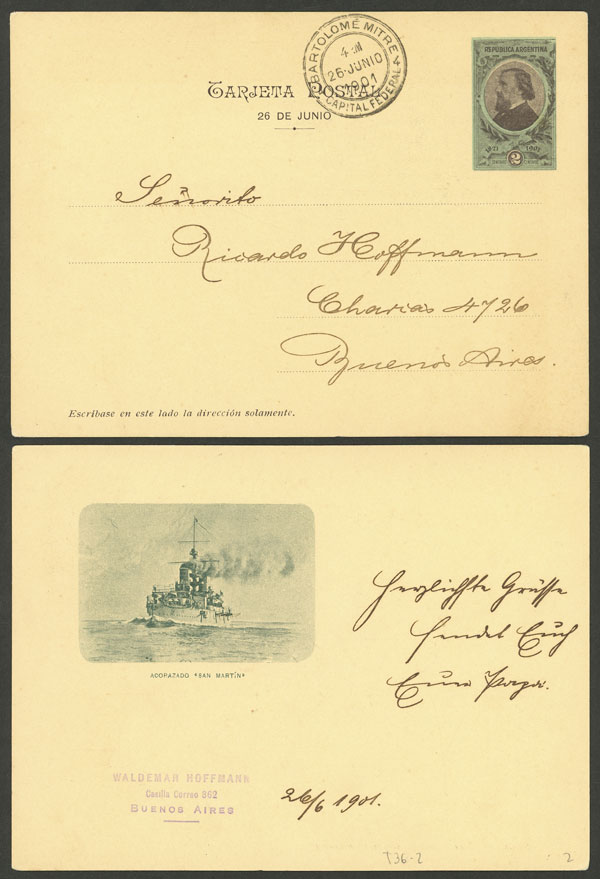 BARTOLOMÉ MITRE
4
26·JUNIO
1901
CAPITAL FEDERAL
REPÚBLICA ARGENTINA
TARJETA POSTAL
26 DE JUNIO
1821 1901
2
Señorito
Ricardo Hoffmann
Charcas 4726
Buenos Aires.
Escríbase en este lado la dirección solamente.
Herzlichste Grüsse
sendet Euch
Euer Papa.
ACORAZADO "SAN MARTÍN"
WALDEMAR HOFFMANN
Casilla Correo 362
BUENOS AIRES
26/6 1901.
T36-2
2